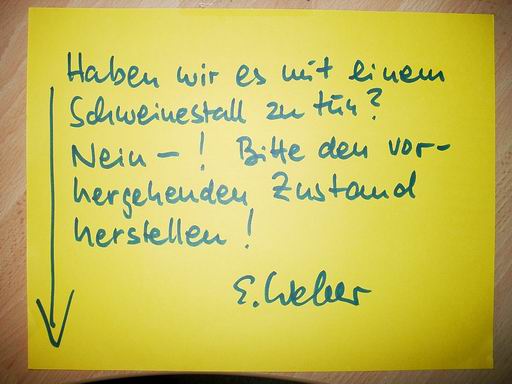 Haben wir es mit einem
Schweinestall zu tun?
Nein – ! Bitte den vor-
hergehenden Zustand
herstellen!
E. Weber